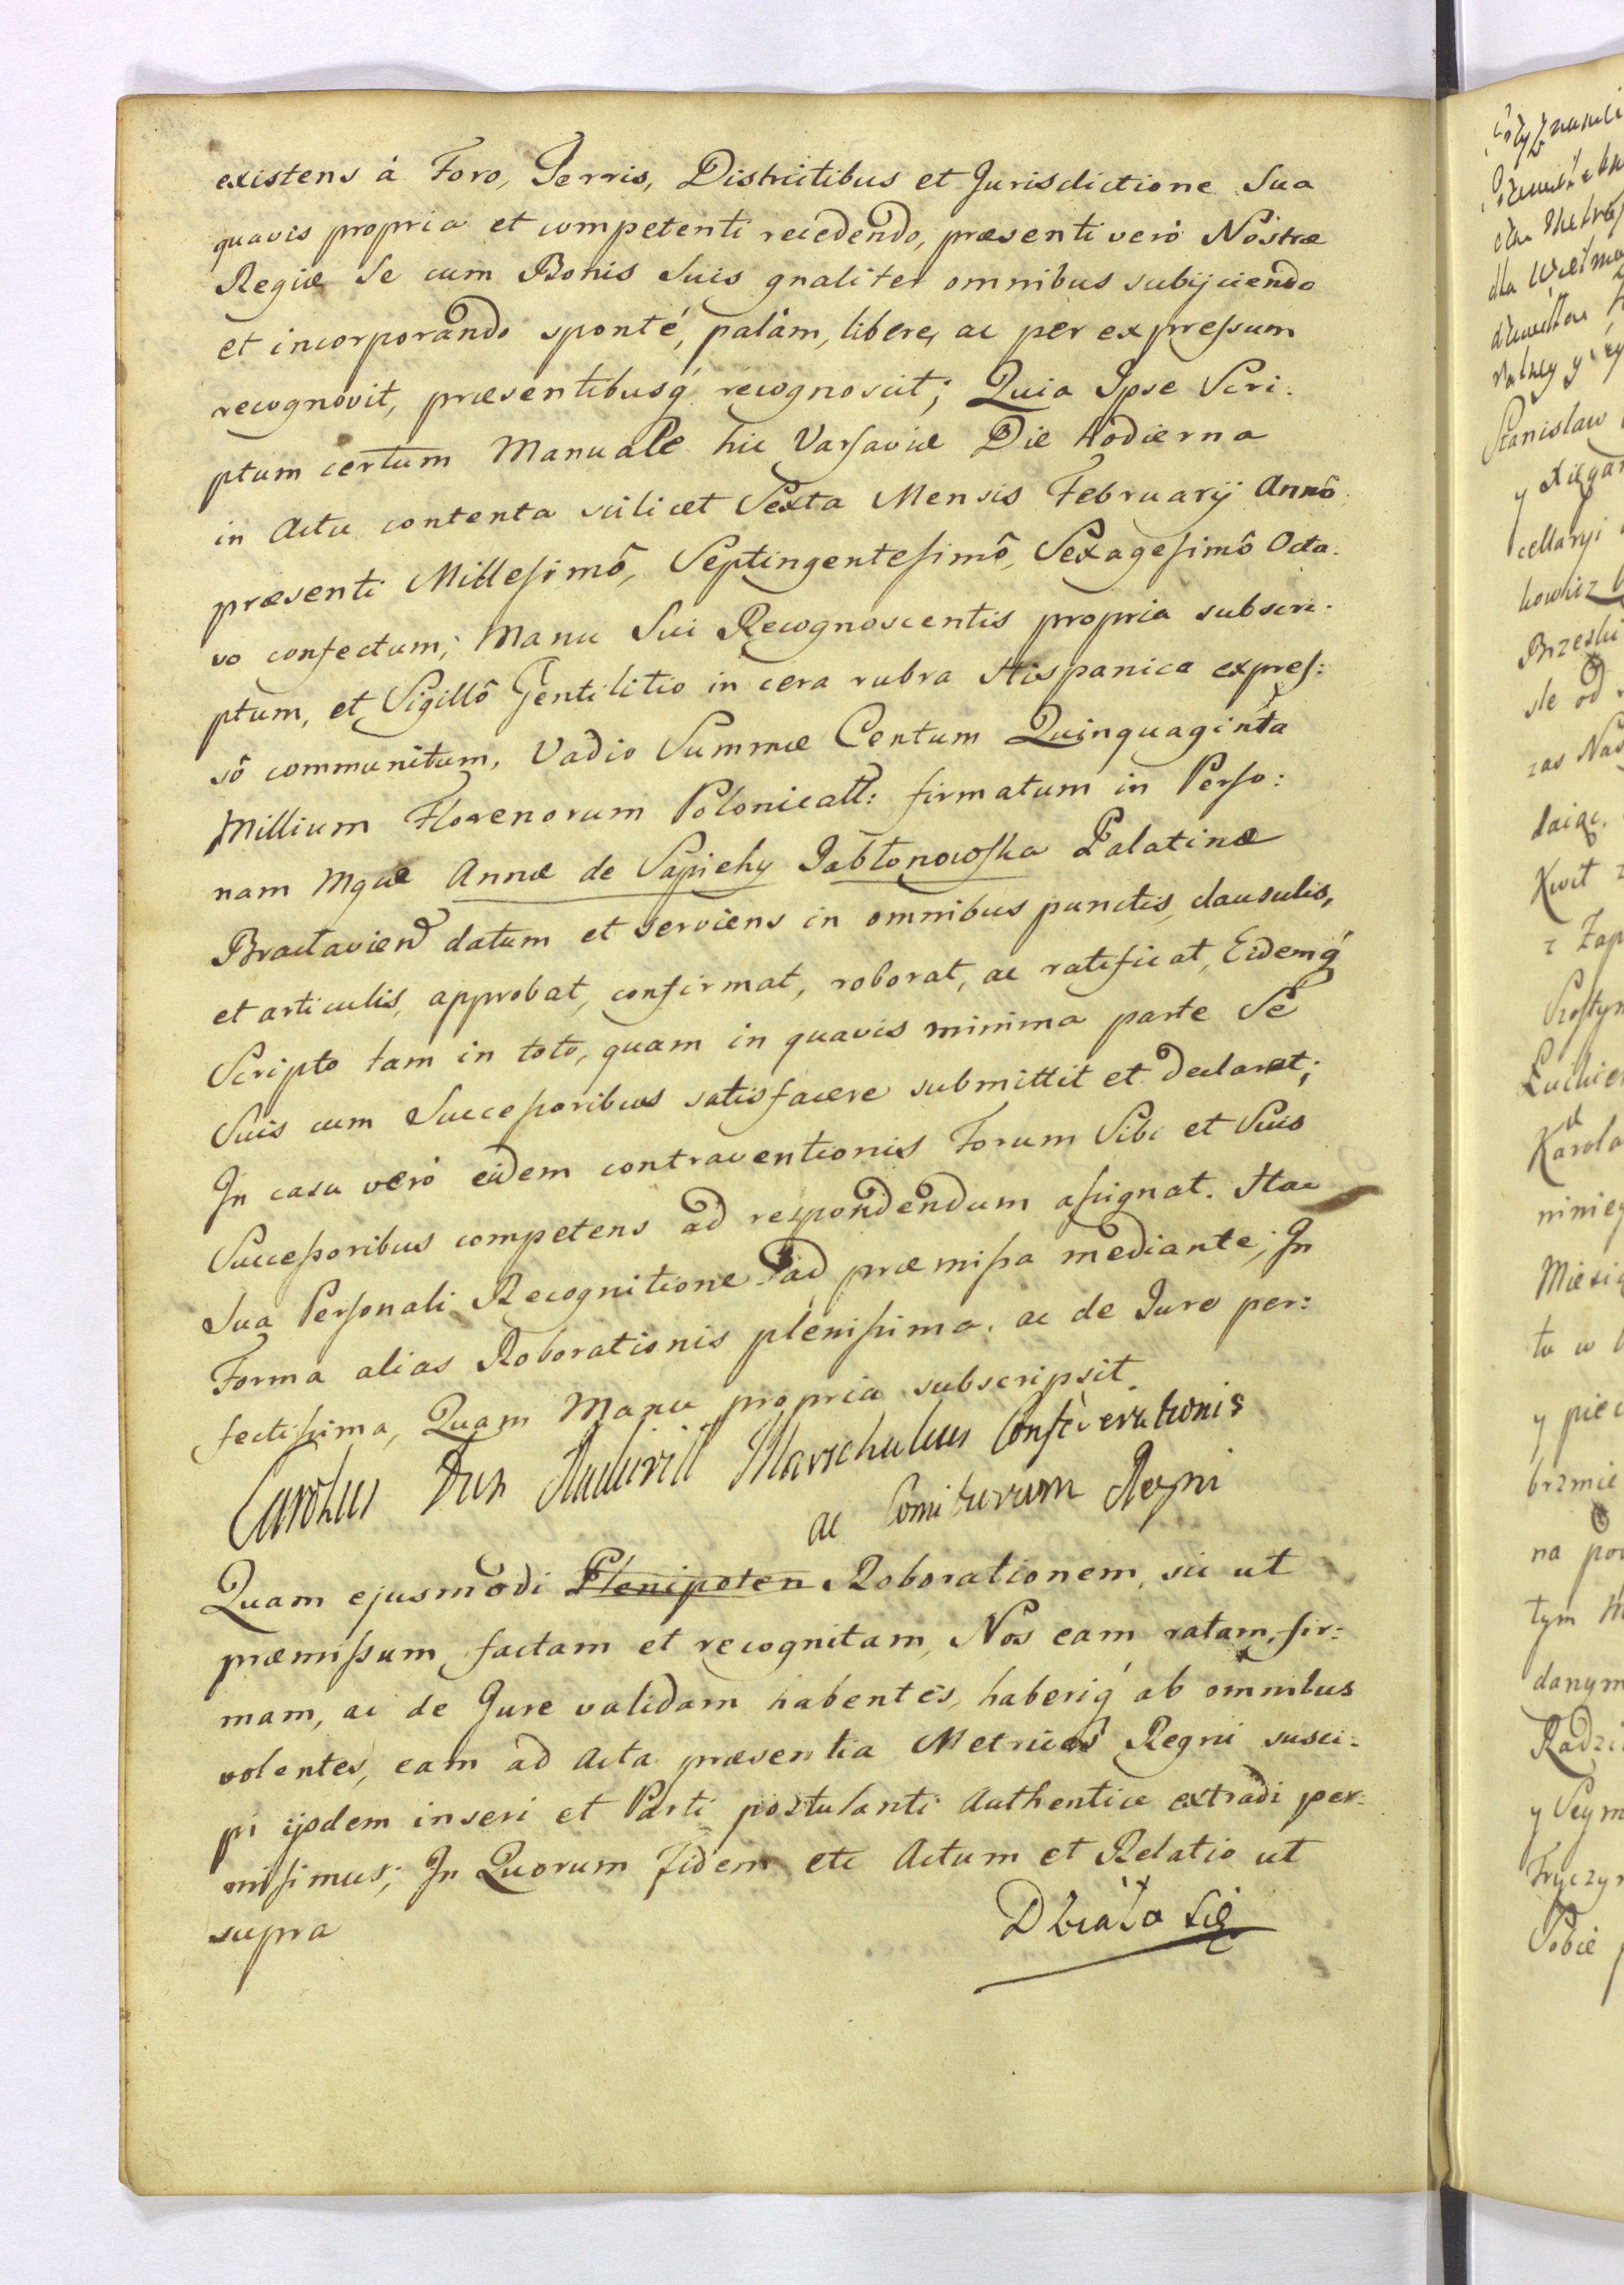 existens á Foro, Terris, Districtibus et Jurisdictione Sua
quavis propria et competenti recedendo, præsenti veró Nostræ
Regiæ Se cum Bonis Suis gnaliter omnibus subijciendo
et incorporando sponté, palám, libere, ac per expressum
recognovit, præsentibusq́ recognoscit; Quia Ipse Scri:
ptum certum Manuale hic Varsaviæ Die hodierna
in Actu contenta scilicet Sexta Mensis Februarij Annô
præsenti Millesimô, Septingentesimô, Sexagesimô Octa:
vo confectum; Manu Sui Recognoscentis propria subscri:
ptum, et Sigillô Gentilitio in cera rubra Hispanica expres:
sô communitum, Vadio Summæ Centum Quinquaginta
Millium Florenorum Polonicall: firmatum in Perso:
nam Mgcæ Annæ de Sapiehy Jabłonowska Palatinæ
Braclavien datum et serviens in omnibus punctis, clausulis,
et articulis, approbat, confirmat, roborat, ac ratificat, Eidemq́
Scripto tam in toto, quam in quavis minima parte Se
Suis cum Successoribus satisfacere submittit et declarat;
In casu veró eidem contraventionis Forum Sibi et Suis
Successoribus competens ad respondendum assignat. Hac
Sua Personali Recognitione ad præmissa mediante; In
Forma alias Roborationis plenissima, ac de Jure per:
fectissima, Quam Manu propria subscripsit
Carolus Dux Radzivill Marschalcus Confœderationis
ac Comitiorum Regni
Quam ejusmodi Plenipoten Roborationem, sic ut
præmissum, factam et recognitam, Nos eam ratam, fir:
mam, ac de Jure validam habentes, haberiq́ ab omnibus
volentes, eam ad Acta præsentia Metrices Regni susci:
pi ijsdem inseri et Parti postulanti Authentice extradi per:
misimus; In Quorum fidem etc Actum et Relatio ut
supra
Działo Się